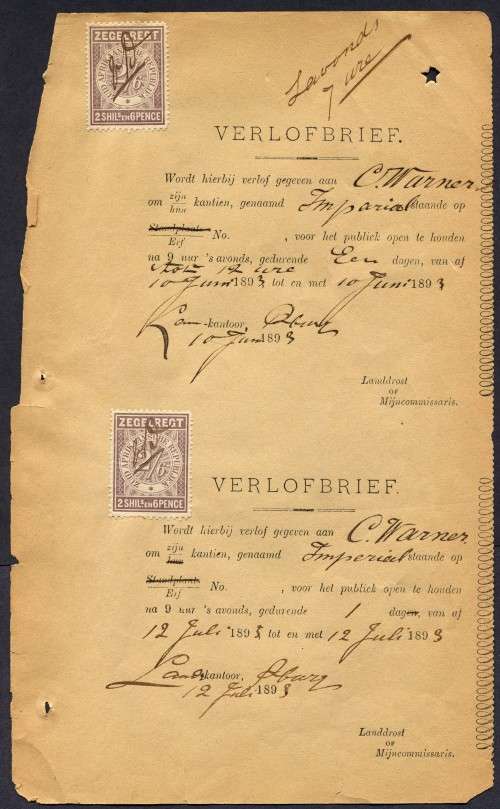 ZEGELREGT
2 SHILs EN 6 PENCE
Savonds
7 ure
VERLOFBRIEF.
Wordt hierbij verlof gegeven aan C. Warner
om zijn/hun kantien, genaamd Imparial staande op
Standplaats/Erf No. , voor het publiek open te houden
na 9 uur 's avonds, gedurende Een dagen, van af
tot 12 ure
10 Juni 1893 tot en met 10 Juni 1893
-kantoor, Pburg
10 Juni 1893
Landdrost
or
Mijncommissaris.
ZEGELREGT
2 SHILs EN 6 PENCE
VERLOFBRIEF.
Wordt hierbij verlof gegeven aan C. Warner
om zijn/hun kantien, genaamd Imperial staande op
Standplaats/Erf No. , voor het publiek open te houden
na 9 uur 's avonds, gedurende 1 dagen, van af
12 Juli 1893 tot en met 12 Juli 1893
kantoor, Pburg
12 Juli 1893
Landdrost
or
Mijncommissaris.